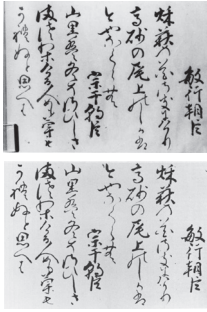 敏行朝臣
秋萩の花さきにけり
高砂の尾上のしか
やなくらむ
宗于朝臣
山里は冬そさひしさ
まさりける人めも草も
かれぬと思へは
敏行朝臣
秋萩の花さきにけり
高砂の尾上のしか
やなくらむ
宗于朝臣
山里は冬そさひしさ
まさりける人めも草も
かれぬと思へは